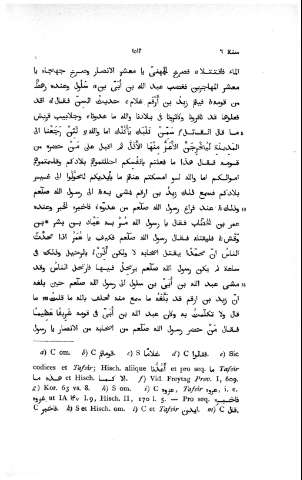 سنة ٦ ١٥١٢
الماء فاقتتلا فصرخ الجهنىّ يا معشر الانصار وصرخ جهجاه يا
معشر المهاجرين فغضب عبد الله بن أُبَىّ بن سَلُول وعنده رهط
من قومه فيهم زيد بن أَرقم غلام حديث السنّ فقال اقد
فعلوها قد نافرونا وكاثرونا فى بلادنا والله ما وجلابيب قريش
ما قال القائل سَمِّنْ كَلْبَكَ يَأْكُلْكَ اما والله لَئِنْ رَجَعْنَا الى
المدينة لَيُخْرِجَنَّ الأَعَزُّ منها الأَذَلَّ ثم اقبل على من حضره من
قومه فقال هذا ما فعلتم بانفسكم احللتموهم بلادكم وقاسمتموهم
اموالكم اما والله لو امسكتم عنهم ما بأيديكم لتحوّلوا الى غير
بلادكم فسمع ذلك زيد بن ارقم فمشى به الى رسول الله صلّعم
وذلك عند فراغ رسول الله صلّعم من فاخبره الخبر وعنده
عمر بن الخطّاب فقال يا رسول الله مُرْ به عَبّاد بن بشر بن
وَقْش فليقتله فقال رسول الله صلّعم فكيف يا عمر اذا تحدّث
الناس انّ محمّدا يقتل اصحابه لا ولكن أَذِّنْ بالرحيل وذلك فى
ساعة لم يكن رسول الله صلّعم يرتحل فيها فارتحل الناس وقد
مشى عبد الله بن أُبَىّ بن سلول الى رسول الله صلّعم حين بلغه
انّ زيد بن ارقم قد بَلَّغَه ما سمع منه فحلف بالله ما قلتُ ما
قال ولا تكلّمت به وكان عبد الله بن أُبَىّ فى قومه شريفًا عظيمًا
فقال من حضر رسول الله صلّعم من اصحابه من الانصار يا رسول
a) C om. b) C قومه. c) S غلامًا. d) C فقالوا. e) Sic
codices et Tafsîr; Hisch. aliique et pro seq. ما Tafsîr
et Hisch. الا كما. f) Vid. Freytag Prov. I, 609.
g) Kor. 63 vs. 8. h) S om. i) C غزوه, Tafsîr, i. e.
غزوه ut IA ١٤٧ l. 9, Hisch. II, 170 l. 5. — Pro seq. فاخبره
C. k) S et Hisch. om. l) C et Tafsîr. m) C قال.